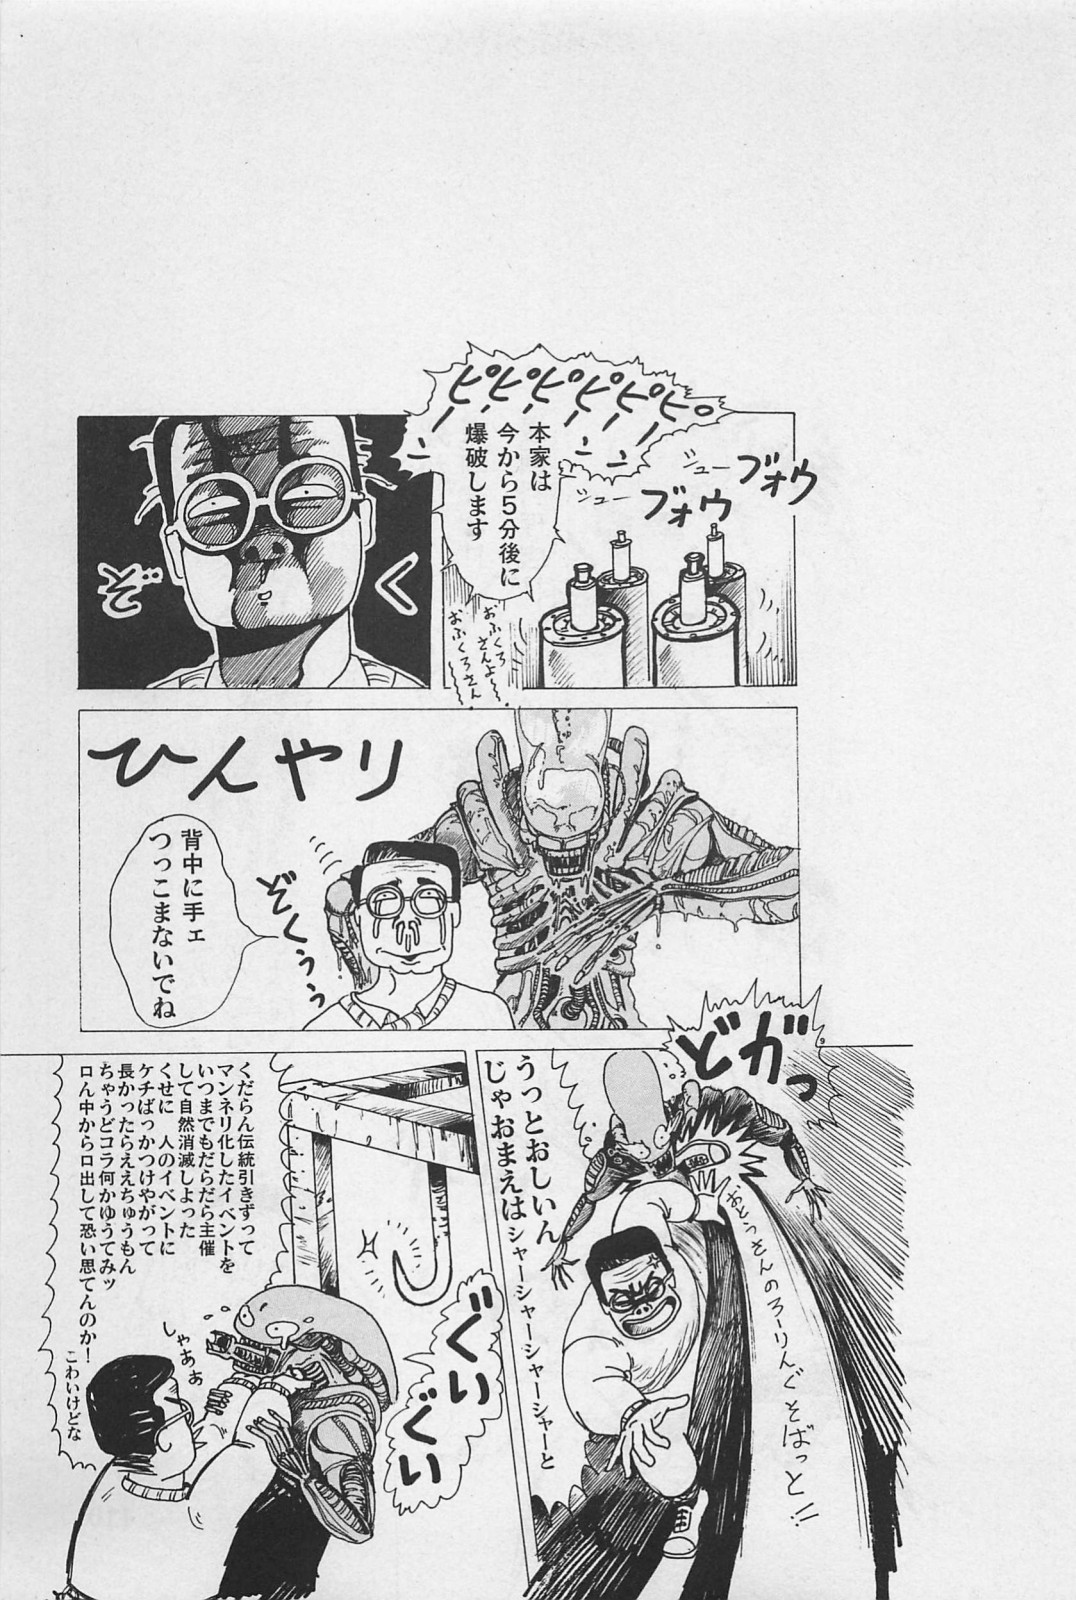 ピーピーピーピーピーピー
本家は
今から5分後に
爆破します
シュー
ブォウ
シュー
ブォウ
おふくろ
さんよ〜
おふくろさん
く
ひんやり
背中に手ェ
つっこまないでね
ぞくぅぅ
どがっ
うっとおしいん
じゃおまえは
シャーシャーシャーシャーシャーと
おとっさんのろーりんぐそばっと!!
ぐいぐい
くだらん伝統引きずって
マンネリ化したイベントを
いつまでもだらだら主催
して自然消滅しよった
くせに 人のイベントに
ケチばっかつけやがって
長かったらええちゅうもん
ちゃうどコラ何かゆうてみッ
口ん中から口出して恐い思てんのか!
こわいけどな
しゃあぁ